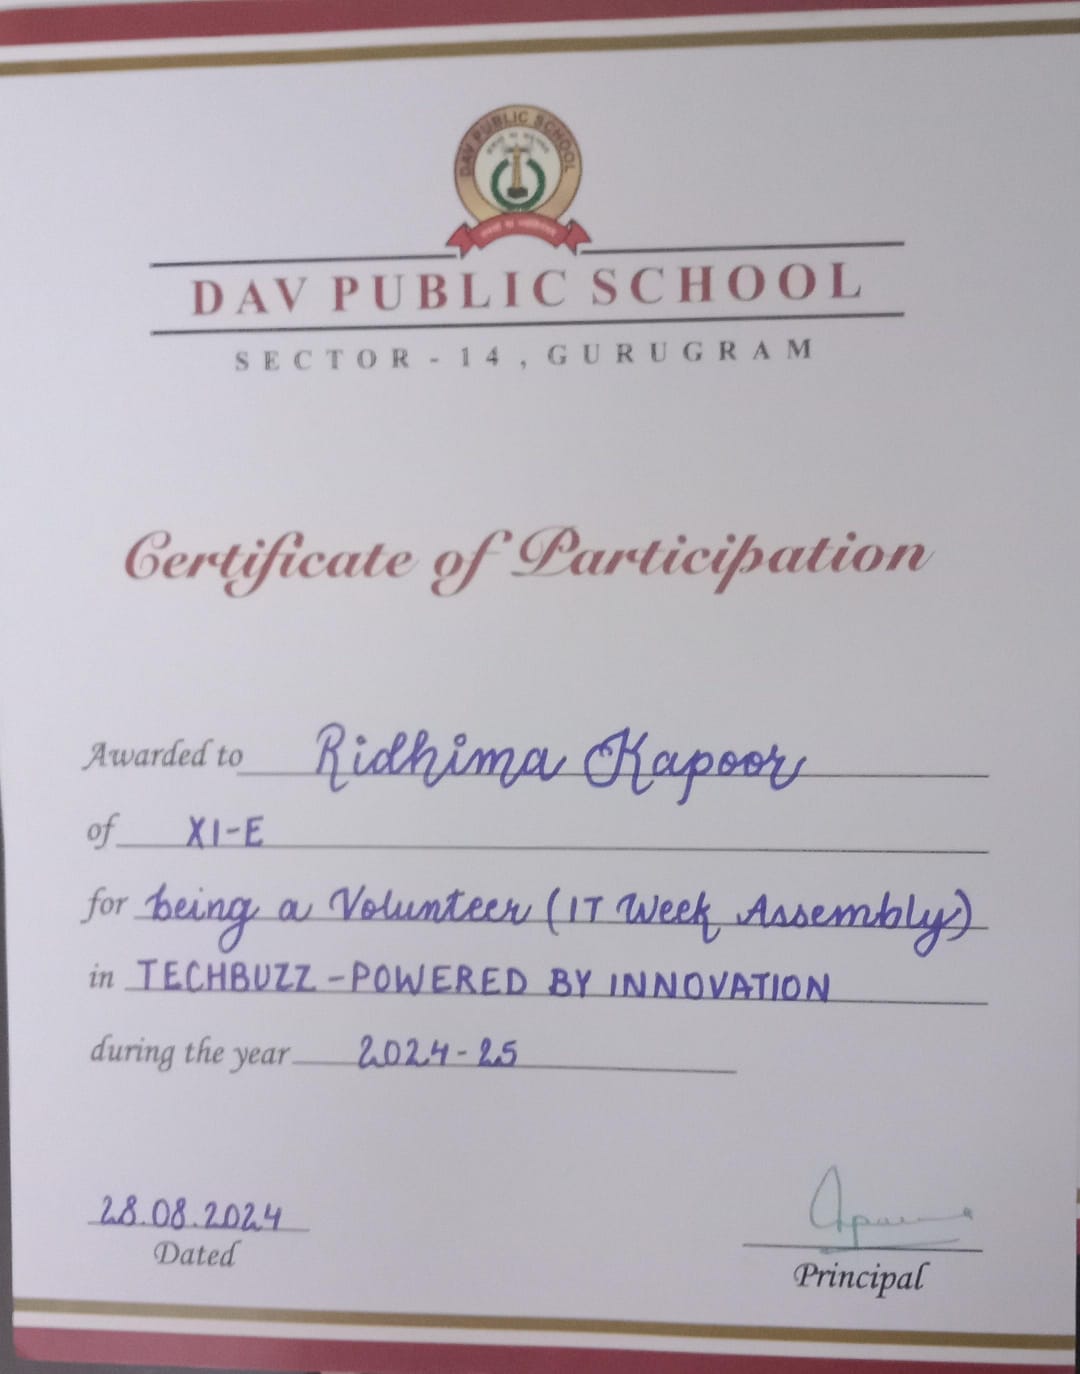 DAV PUBLIC SCHOOL
DAV PUBLIC SCHOOL
SECTOR - 14, GURUGRAM
Certificate of Participation
Awarded to Ridhima Kapoor
of XI-E
for being a Volunteer (IT Week Assembly)
in TECHBUZZ - POWERED BY INNOVATION
during the year 2024-25
28.08.2024
Dated
Principal